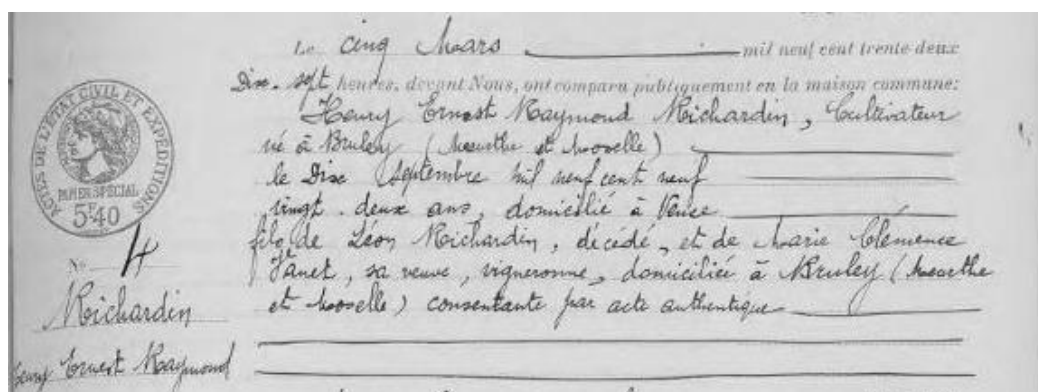 Le cinq Mars mil neuf cent trente-deux
Dix-sept heures, devant Nous, ont comparu publiquement en la maison commune:
Henry Ernest Raymond Richardin, Cultivateur
né à Bruley (Meurthe et Moselle)
le Dix Septembre mil neuf cent neuf
vingt-deux ans, domicilié à Vence
fils de Léon Richardin, décédé, et de Marie Clémence
Janet, sa veuve, vigneronne, domiciliée à Bruley (Meurthe
et Moselle) consentante par acte authentique
ACTES DE L'ÉTAT CIVIL ET EXPÉDITIONS
PAPIER SPÉCIAL
5F40
No 4
Richardin
Henry Ernest Raymond